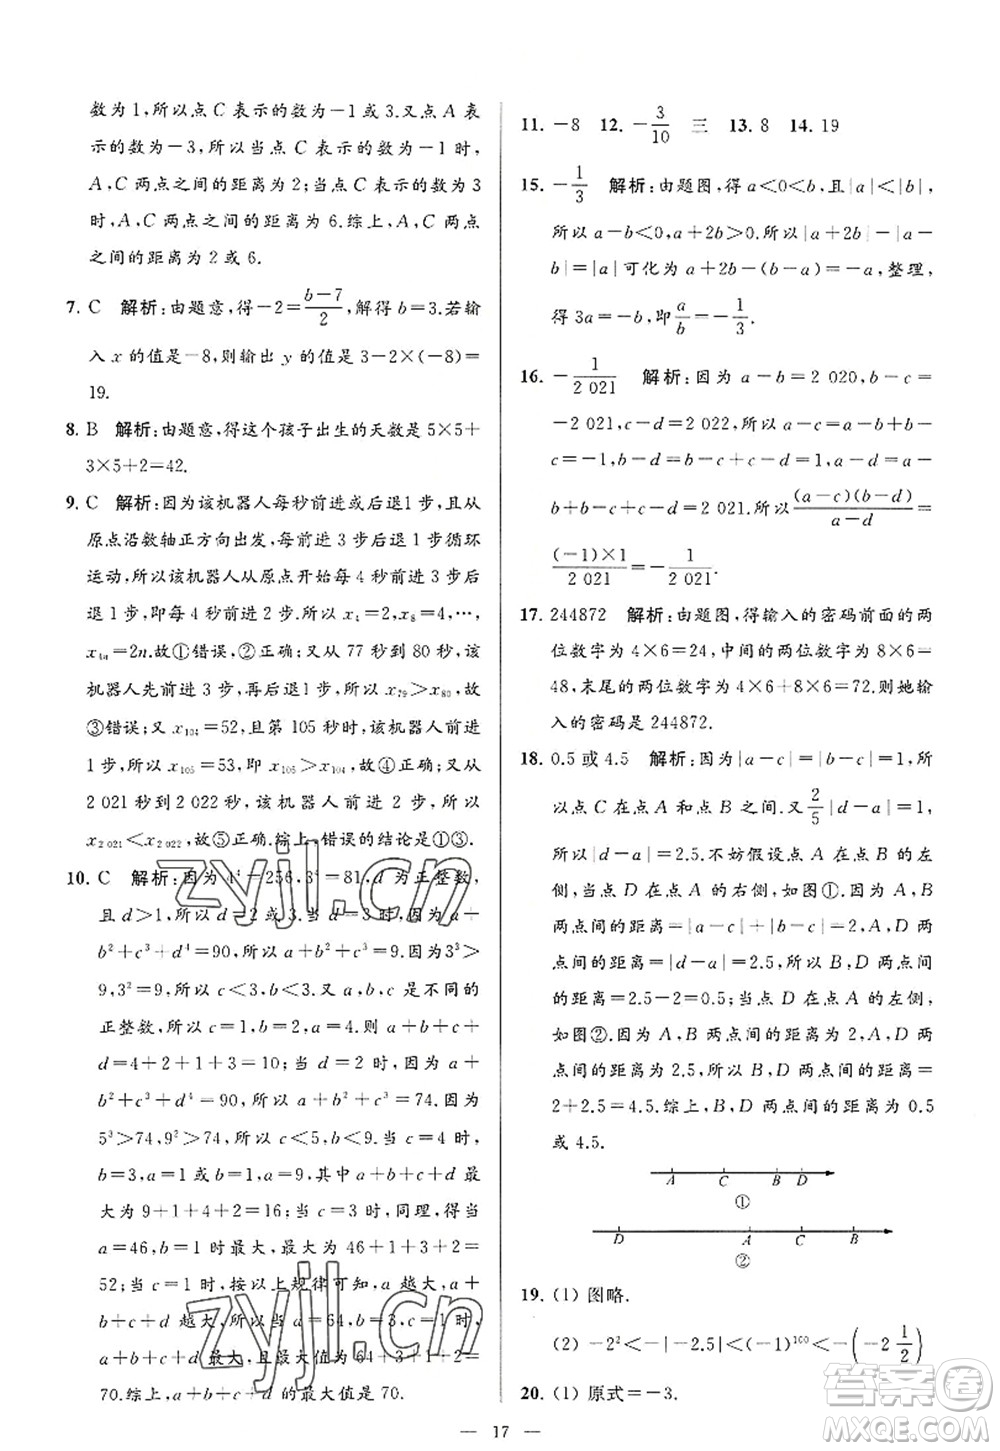 数为1,所以点C表示的数为-1或3.又点A表
示的数为-3,所以当点C表示的数为-1时,
A,C两点之间的距离为2;当点C表示的数为3
时,A,C两点之间的距离为6.综上,A,C两点
之间的距离为2或6.
7. C 解析:由题意,得-2=\frac{b-7}{2},解得b=3.若输
入x的值是-8,则输出y的值是3-2×(-8)=
19.
8. B 解析:由题意,得这个孩子出生的天数是5×5+
3×5+2=42.
9. C 解析:因为该机器人每秒前进或后退1步,且从
原点沿数轴正方向出发,每前进3步后退1步循环
运动,所以该机器人从原点开始每4秒前进3步后
退1步,即每4秒前进2步.所以x₄=2,x₈=4,…,
x₄ₙ=2n.故①错误,②正确;又从77秒到80秒,该
机器人先前进3步,再后退1步,所以x₇₉>x₈₀,故
③错误;又x₁₀₄=52,且第105秒时,该机器人前进
1步,所以x₁₀₅=53,即x₁₀₅>x₁₀₄,故④正确;从
2 021秒到2 022秒,该机器人前进1步,所以
x₂ ₀₂₁<x₂ ₀₂₂,故⑤正确.综上,错误的结论是①③.
10. C 解析:因为4⁴=256,3⁴=81,d为正整数,
且d>1,所以d=2或3.当d=3时,因为a+
b²+c³+d⁴=90,所以a+b²+c³=9.因为3³>
9,3²=9,所以c<3,b<3.因为a,b,c为
正整数,所以c=1,b=2,a=4.则a+b+c+
d=4+2+1+3=10;当d=2时,因为a+
b²+c³+d⁴=90,所以a+b²+c³=74.因为
5³>74,9²>74,所以c<5,b<9.当c=4时,
b=3,a=1或b=1,a=9,其中a+b+c+d最
大为9+1+4+2=16;当c=3时,同理,得当
a=46,b=1时最大,最大为46+1+3+2=
52;当c=1时,按以上规律可知,a越大,a+
b+c+d越大,所以当a=64,b=3时,
a+b+c+d最大,且最大值为64+3+1+2=
70.综上,a+b+c+d的最大值是70.
11. -8 12. -\frac{3}{10} 三 13. 8 14. 19
15. -\frac{1}{3} 解析:由题图,得a<0<b,且|a|<|b|,
所以a-b<0,a+2b>0.所以|a+2b|-|a-
b|=|a|可化为a+2b-(b-a)=-a,整理,
得3a=-b,即\frac{a}{b}=-\frac{1}{3}.
16. -\frac{1}{2 021} 解析:因为a-b=2 020,b-c=
-2 021,c-d=2 022,所以a-c=a-b+b-
c=-1,b-d=b-c+c-d=1,a-d=a-
b+b-c+c-d=2 021.所以\frac{(a-c)(b-d)}{a-d}=
\frac{(-1)×1}{2 021}=-\frac{1}{2 021}.
17. 244872 解析:由题图,得输入的密码前面的两
位数字为4×6=24,中间的两位数字为8×6=
48,末尾的两位数字为4×6+8×6=72.则她输
入的密码是244872.
18. 0.5或4.5 解析:因为|a-c|=|b-c|=1,所
以点C在点A和点B之间.又\frac{2}{5}|d-a|=1,
所以|d-a|=2.5.不妨假设点A在点B的左
侧,当点D在点A的右侧时,如图①.因为A,B
两点间的距离为|a-c|+|b-c|=2,A,D两点
间的距离为|d-a|=2.5,所以B,D两点间的
距离为2.5-2=0.5;当点D在点A的左侧时,
如图②.因为A,B两点间的距离为2,A,D两
点间的距离为2.5,所以B,D两点间的距离为
2+2.5=4.5.综上,B,D两点间的距离为0.5
或4.5.
A C B D
①
D A C B
②
19. (1) 图略.
(2) -2²<-|-2.5|<(-1)¹⁰⁰<-(-2\frac{1}{2}).
20. (1) 原式=-3.
— 17 —
zyjl.cn
zyjl.cn
答案圈
MXQE.COM